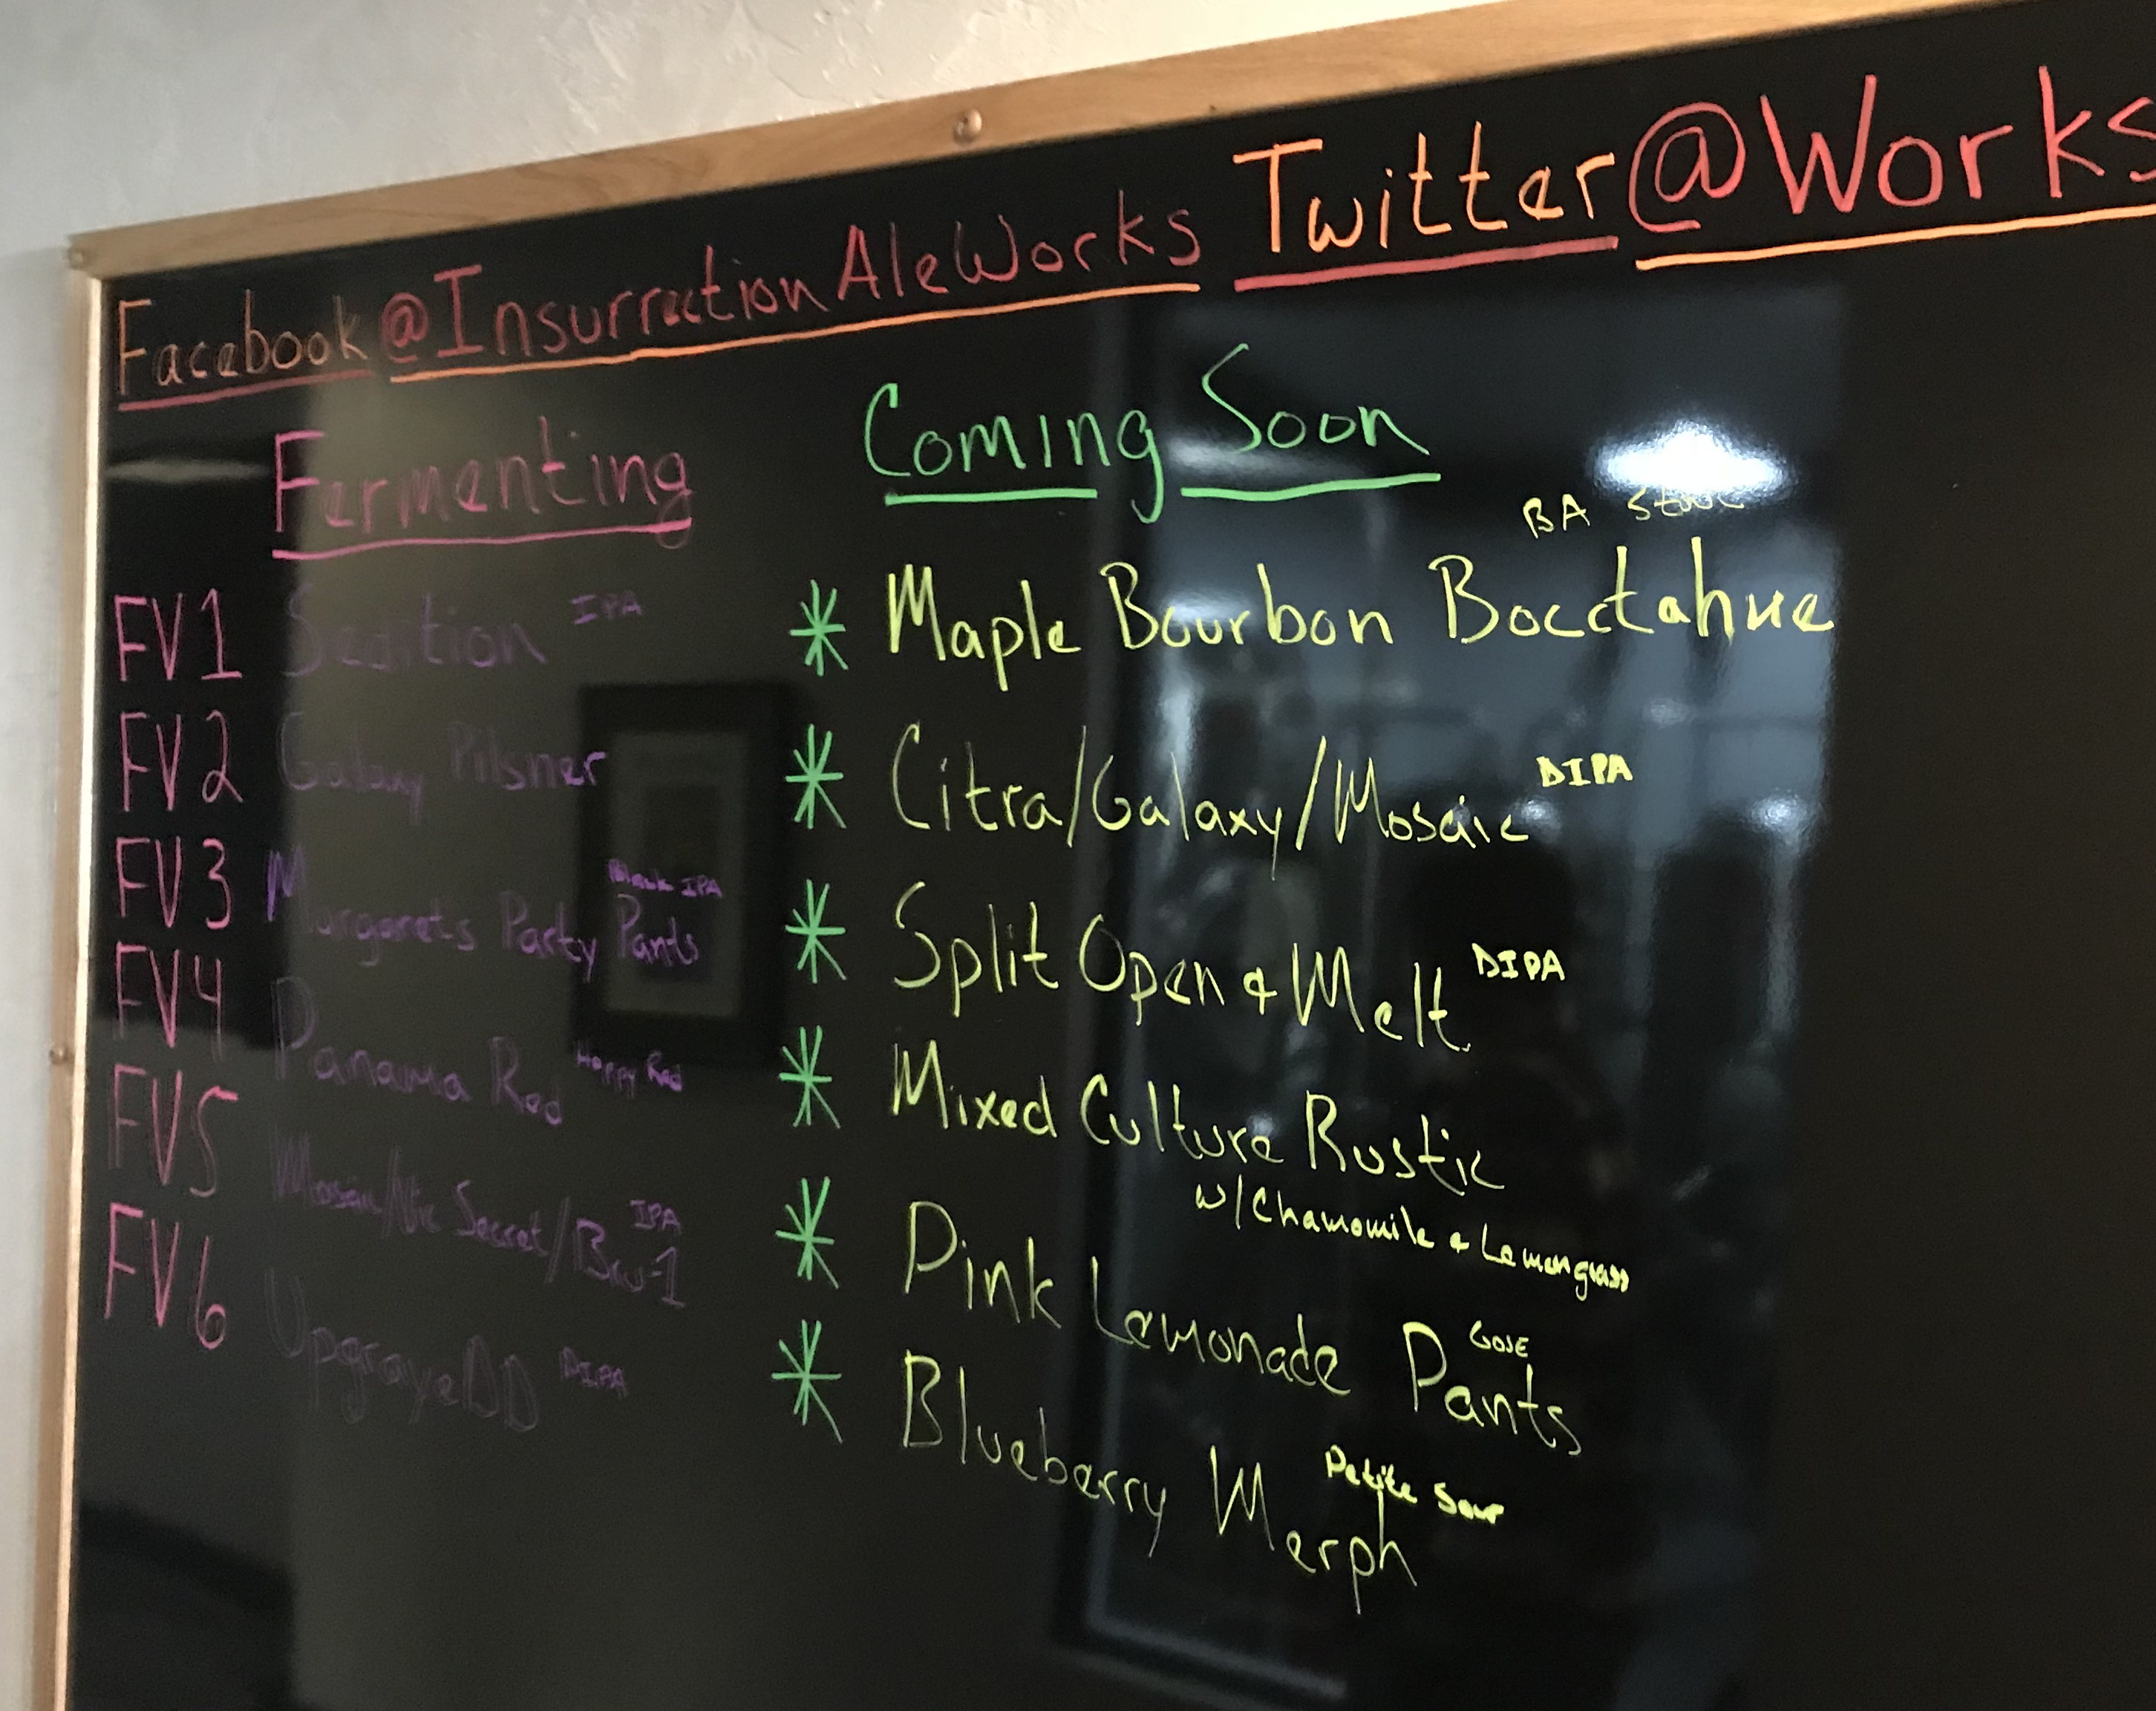 Facebook @InsurrectionAleWorks Twitter @Works
Fermenting
FV1 Sedition IPA
FV2 Galaxy Pilsner
FV3 Margarets Party Pants Black IPA
FV4 Panama Red Hoppy Red
FV5 Mosaic/Vic Secret/Bru-1 IPA
FV6 UpgrayeDD DIPA
Coming Soon
BA Stout
* Maple Bourbon Bocctahue
* Citra/Galaxy/Mosaic DIPA
* Split Open & Melt DIPA
* Mixed Culture Rustic
w/Chamomile & Lemongrass
* Pink Lemonade Pants GOSE
* Blueberry Merph Petite Sour